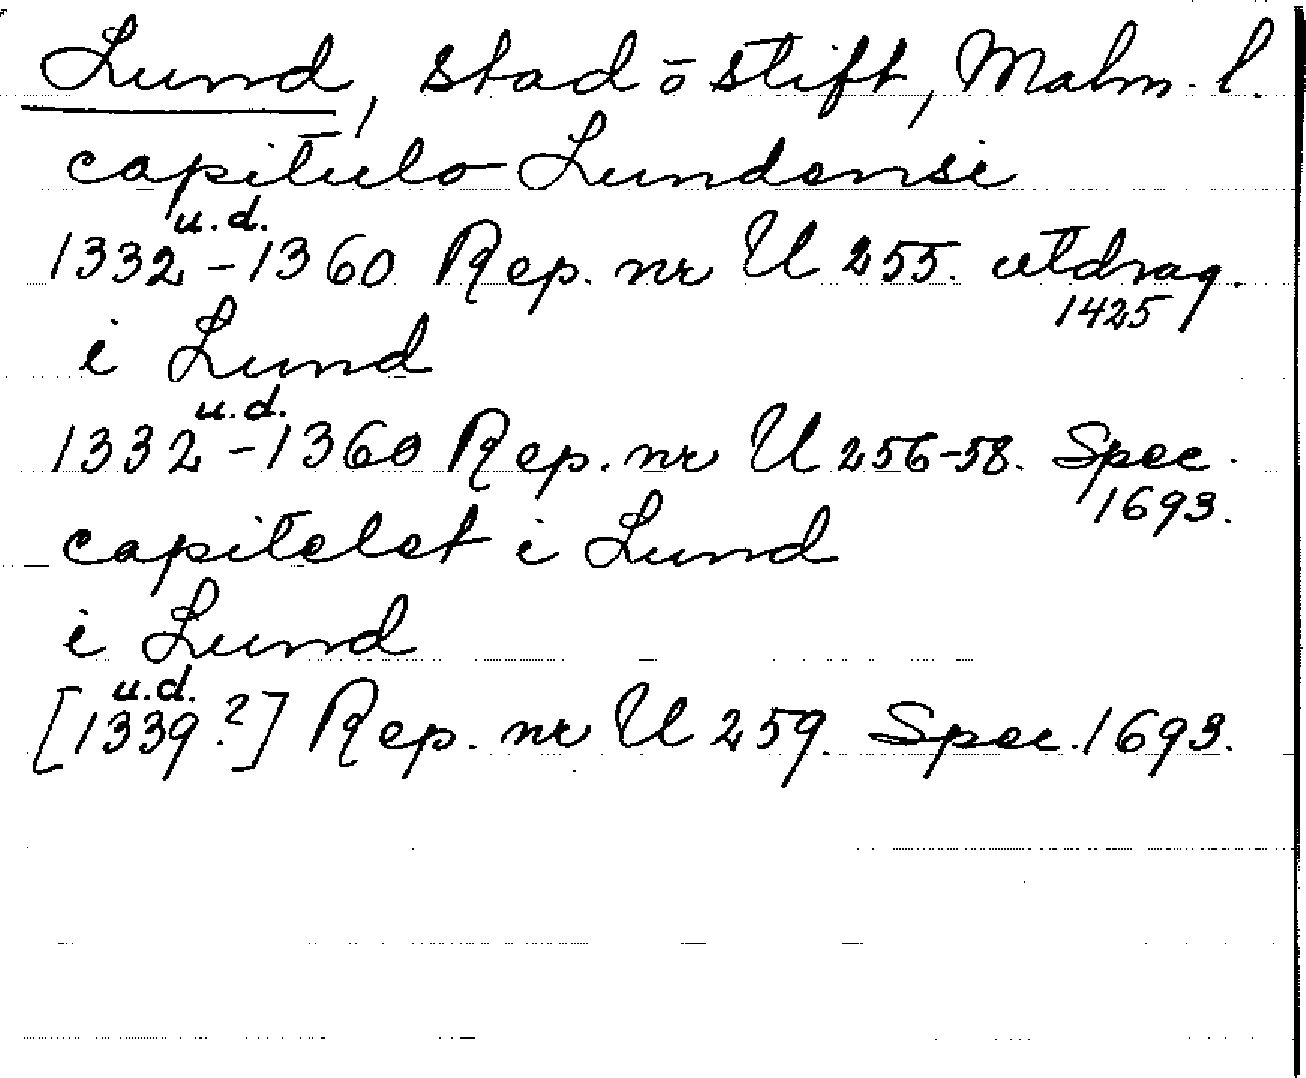 Lund, stad ō stift, Malm. l.
capitulo Lundensi
u.d.
1332-1360 Rep. nr U 255. utdrag.
1425
i Lund
u.d.
1332-1360 Rep. nr U 256-58. Spec.
1693.
capitelet i Lund
i Lund
u.d.
[1339?] Rep. nr U 259. Spec. 1693.